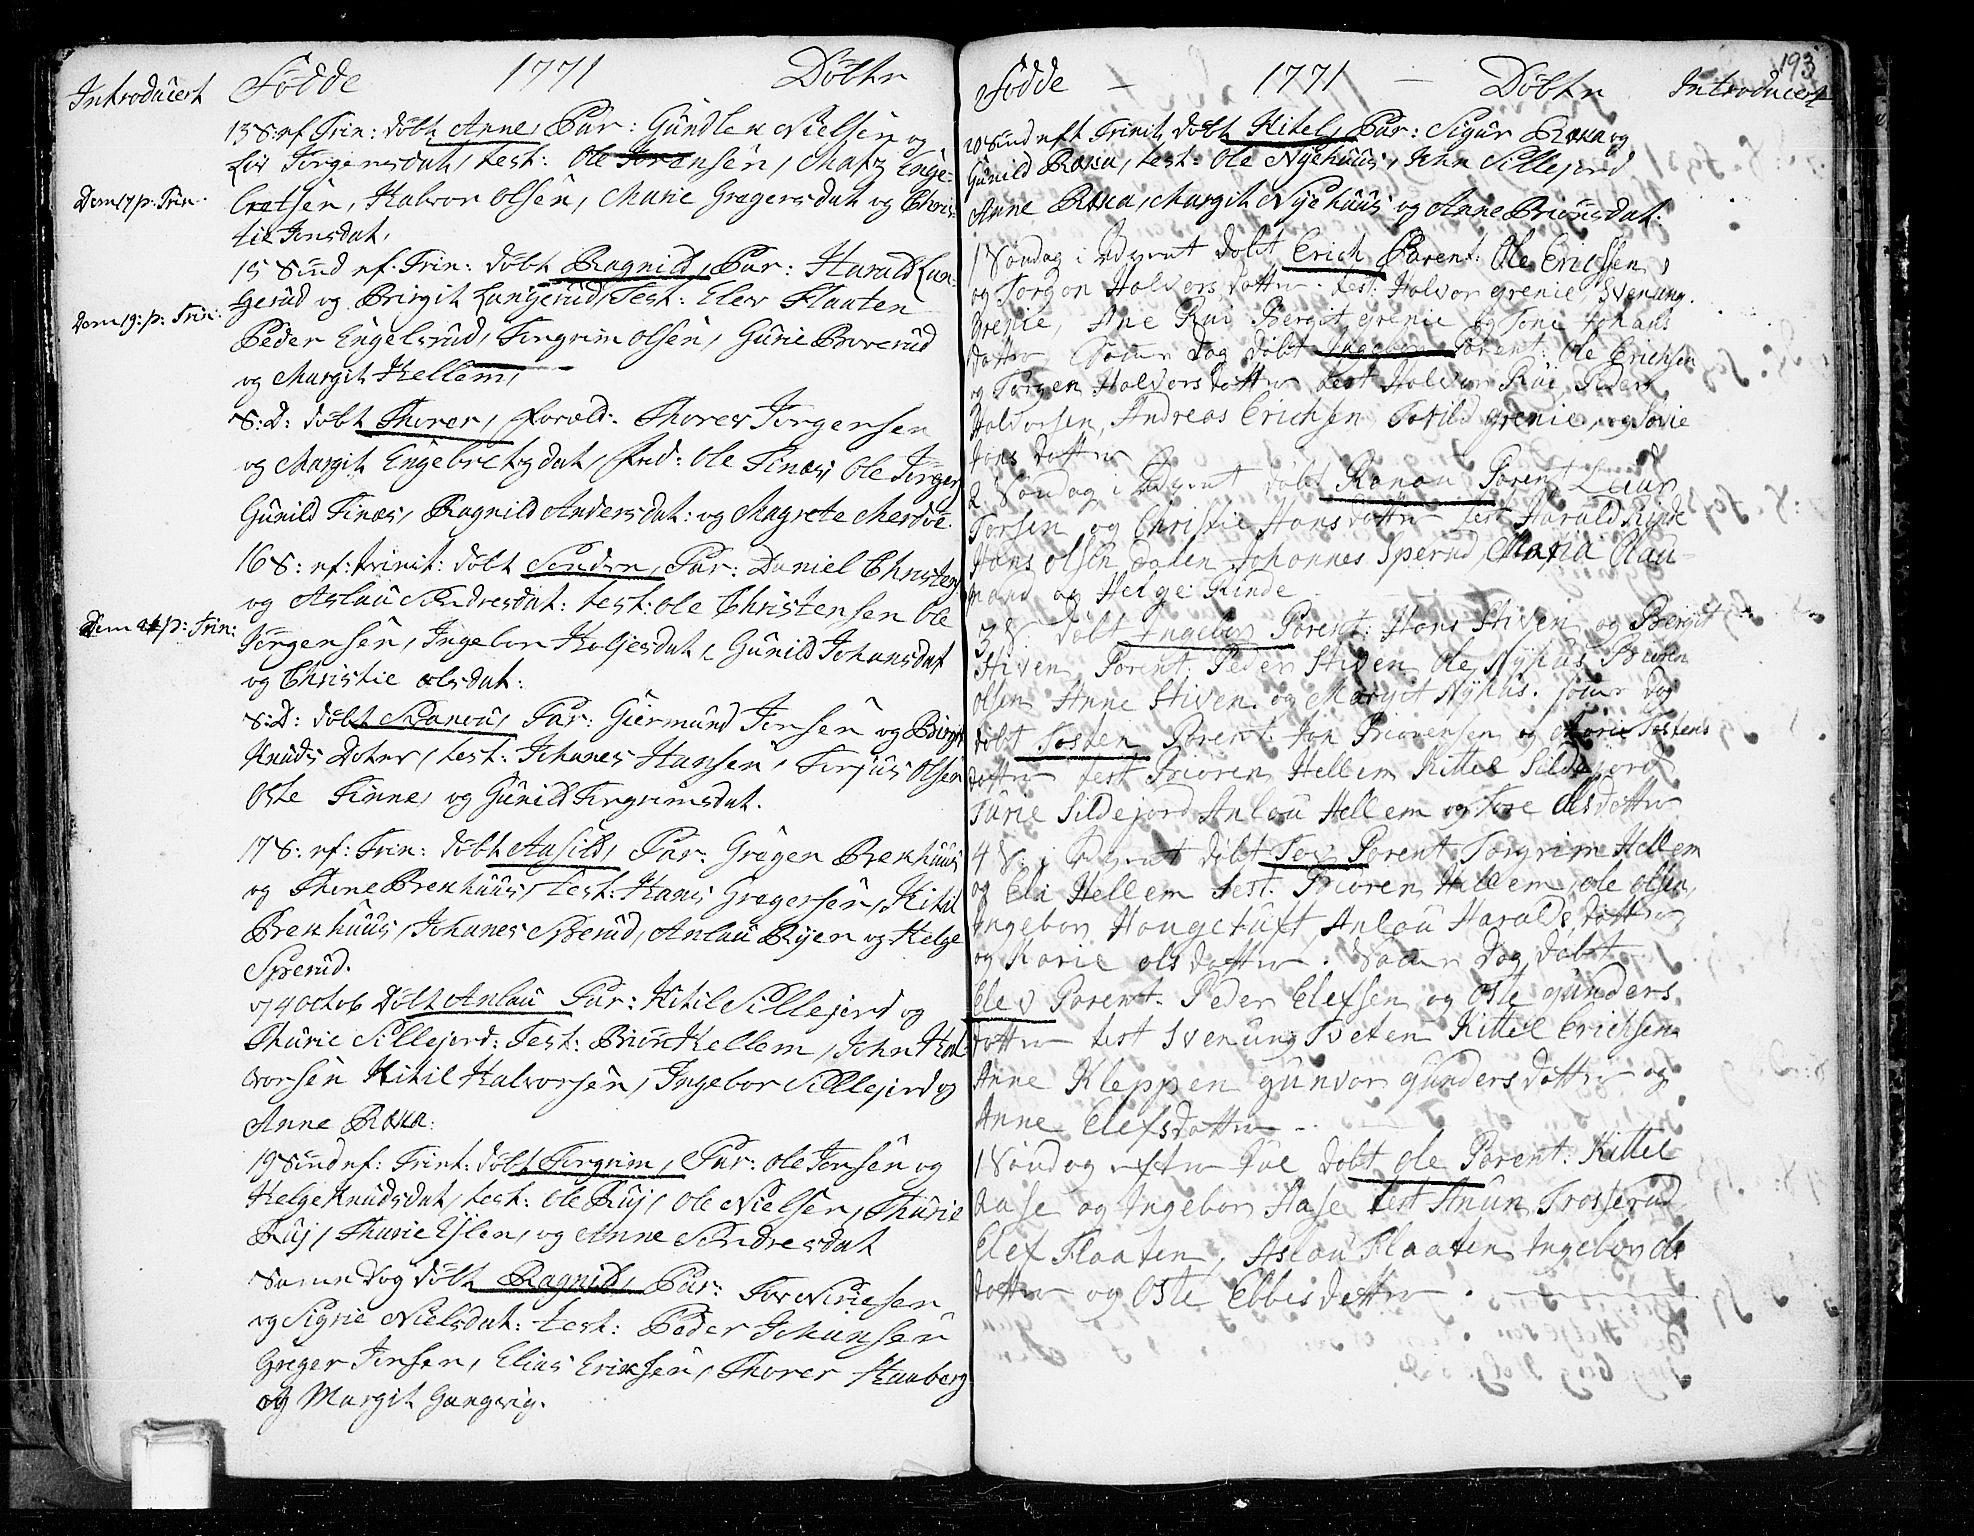 Introducert Födde 1771 Döbte
13 S: ef Trin: döbt Anne, Par: Gundlek Nielsen og
Liv Jörgensdat, test: Ole Joransen, Matz Enge-
Dom 17 p. Trin: bretsen, Halvor Olsen, Marie Gregersdat og Chris-
tie Jensdat,
15 Sünd ef. Trin: döbt Ragnild, Par: Harald Lan-
Dom 19: p: Trin: gerud og Birgit Langerud, Test: Elev Flaaten
Peder Engelsrud, Torgrim Olsen, Gurie Broverud
og Margit Hellem,
S: D: döbt Thorer, foræld: Thorer Jörgensen
og Margit Engebretsdat, fad: Ole Tinæs, Ole Jörgen
Gunild Tinæs, Ragnild Andersdat: og Magrete Merdöe.
16 S: ef: trinit: döbt Sendre, Par: Daniel Christens
og Aslau Sendresdat: test: Ole Christensen Ole
Dom 21 p: Trin: Jörgensen, Ingebor Koljesdat, Gunild Johansdat
og Christie olsdat:
S: D: döbt Ranou, Par: Giermund Jensen og Birgit
Knuds Doter, test: Johanes Hansen, Torjus Olsen
Oste Tinne, og Gunild Torgrimsdat.
17 S: ef: Trin: döbt Aasild, Par: Greger Brekhuus
og Thone Brekhuus, test: Hans Gregersen, Kitil
Brekhuus, Johanes Sperud, Anlau Ryen og Helge
Sperud.
14 Octob Döbt Anlau Par: Kitil Sillejord og
Thurie Sillejord: Test: Briun Hellem, John Hal-
vorsen Kitil Halvorsen, Ingebor Sillejord og
Anne Roxa:
19 Sünd ef: Trint: döbt Torgrim, Par: Ole Jensen og
Helge Knudsdat, test: Ole Ruj, Ole Nielsen, Thurie
Ruj, Thurie Yslen, og Anne Sendresdat
Same Dag döbt Ragnild, Par: Tov Niriesen
og Sigrie Nielsdat: test: Peder Johansen
Greger Jensen, Elias Eriksen, Thorer Haaberg
og Margit Gangvig.
193
Födde - 1771 - Döbte Introducert
20 Sünd eft Trinit, döbt Kitel, Par: Sigur Roxa og
Gunild Roxa, test: Ole Nyehuus, John Sillejord
Anne Roxa, Margit Nyehuus og Anne Briunsdat:
1 Söndag i Advent döbt Erich Parent: Ole Erichsen
og Torgon Halvors datter. test: Halvor grenie, Svenung
Grenie, Ane Rui Bergit grenie og Tone Johans
datter. Same Dag döbt Ingebor Parent: Ole Erichsen
og Torgen Halvors datter test Halvor Rui Peder
Halvorsen, Andreas Erichsen Torild grenie, og Torie
Jons datter
2 Söndag i Advent döbt Ranou Parent Laur
Torsen og Christie Hans datter test Harald Rinde
Hans olsen Dalen Johannes Sperud Maria Clau-
mand og Helge Rinde
3 S döbt Ingebor Parent: Hans Stiven og Bergit
Stiven Parent Peder Stiven Ole Nyhus Briun
olsen Anne Stiven. og Margit Nyhus. Same Dag
döbt Tosten Parent: Jon Briorensen og Marie Tostens
datter test Brioren Hellem Kittel Sildejord
Turie Sildejord Anlou Hellem og Tore Olsdatter
4 S: i Advent döbt Tov Parent Torgrim Hellem
og Eli Hellem test: Brioren Hellem, ole olsen,
Ingebor Hougetuft Anlou Haralds datter
og Karie olsdatter. Same Dag döbt
Elev Parent. Peder Elefsen og Oste gunders
datter test Svenung Tveten Kittel Erichsen
Anne Kleppen gunvor gunders datter og
Anne Elefsdatter -
1 Söndag efter Jul döbt ole Parent: Kittel
Aase og Ingebor Aase test Anun Trosserud
Elef Flaaten, Aslou Flaaten Ingebor ols
datter og Oste Ebbis datter.